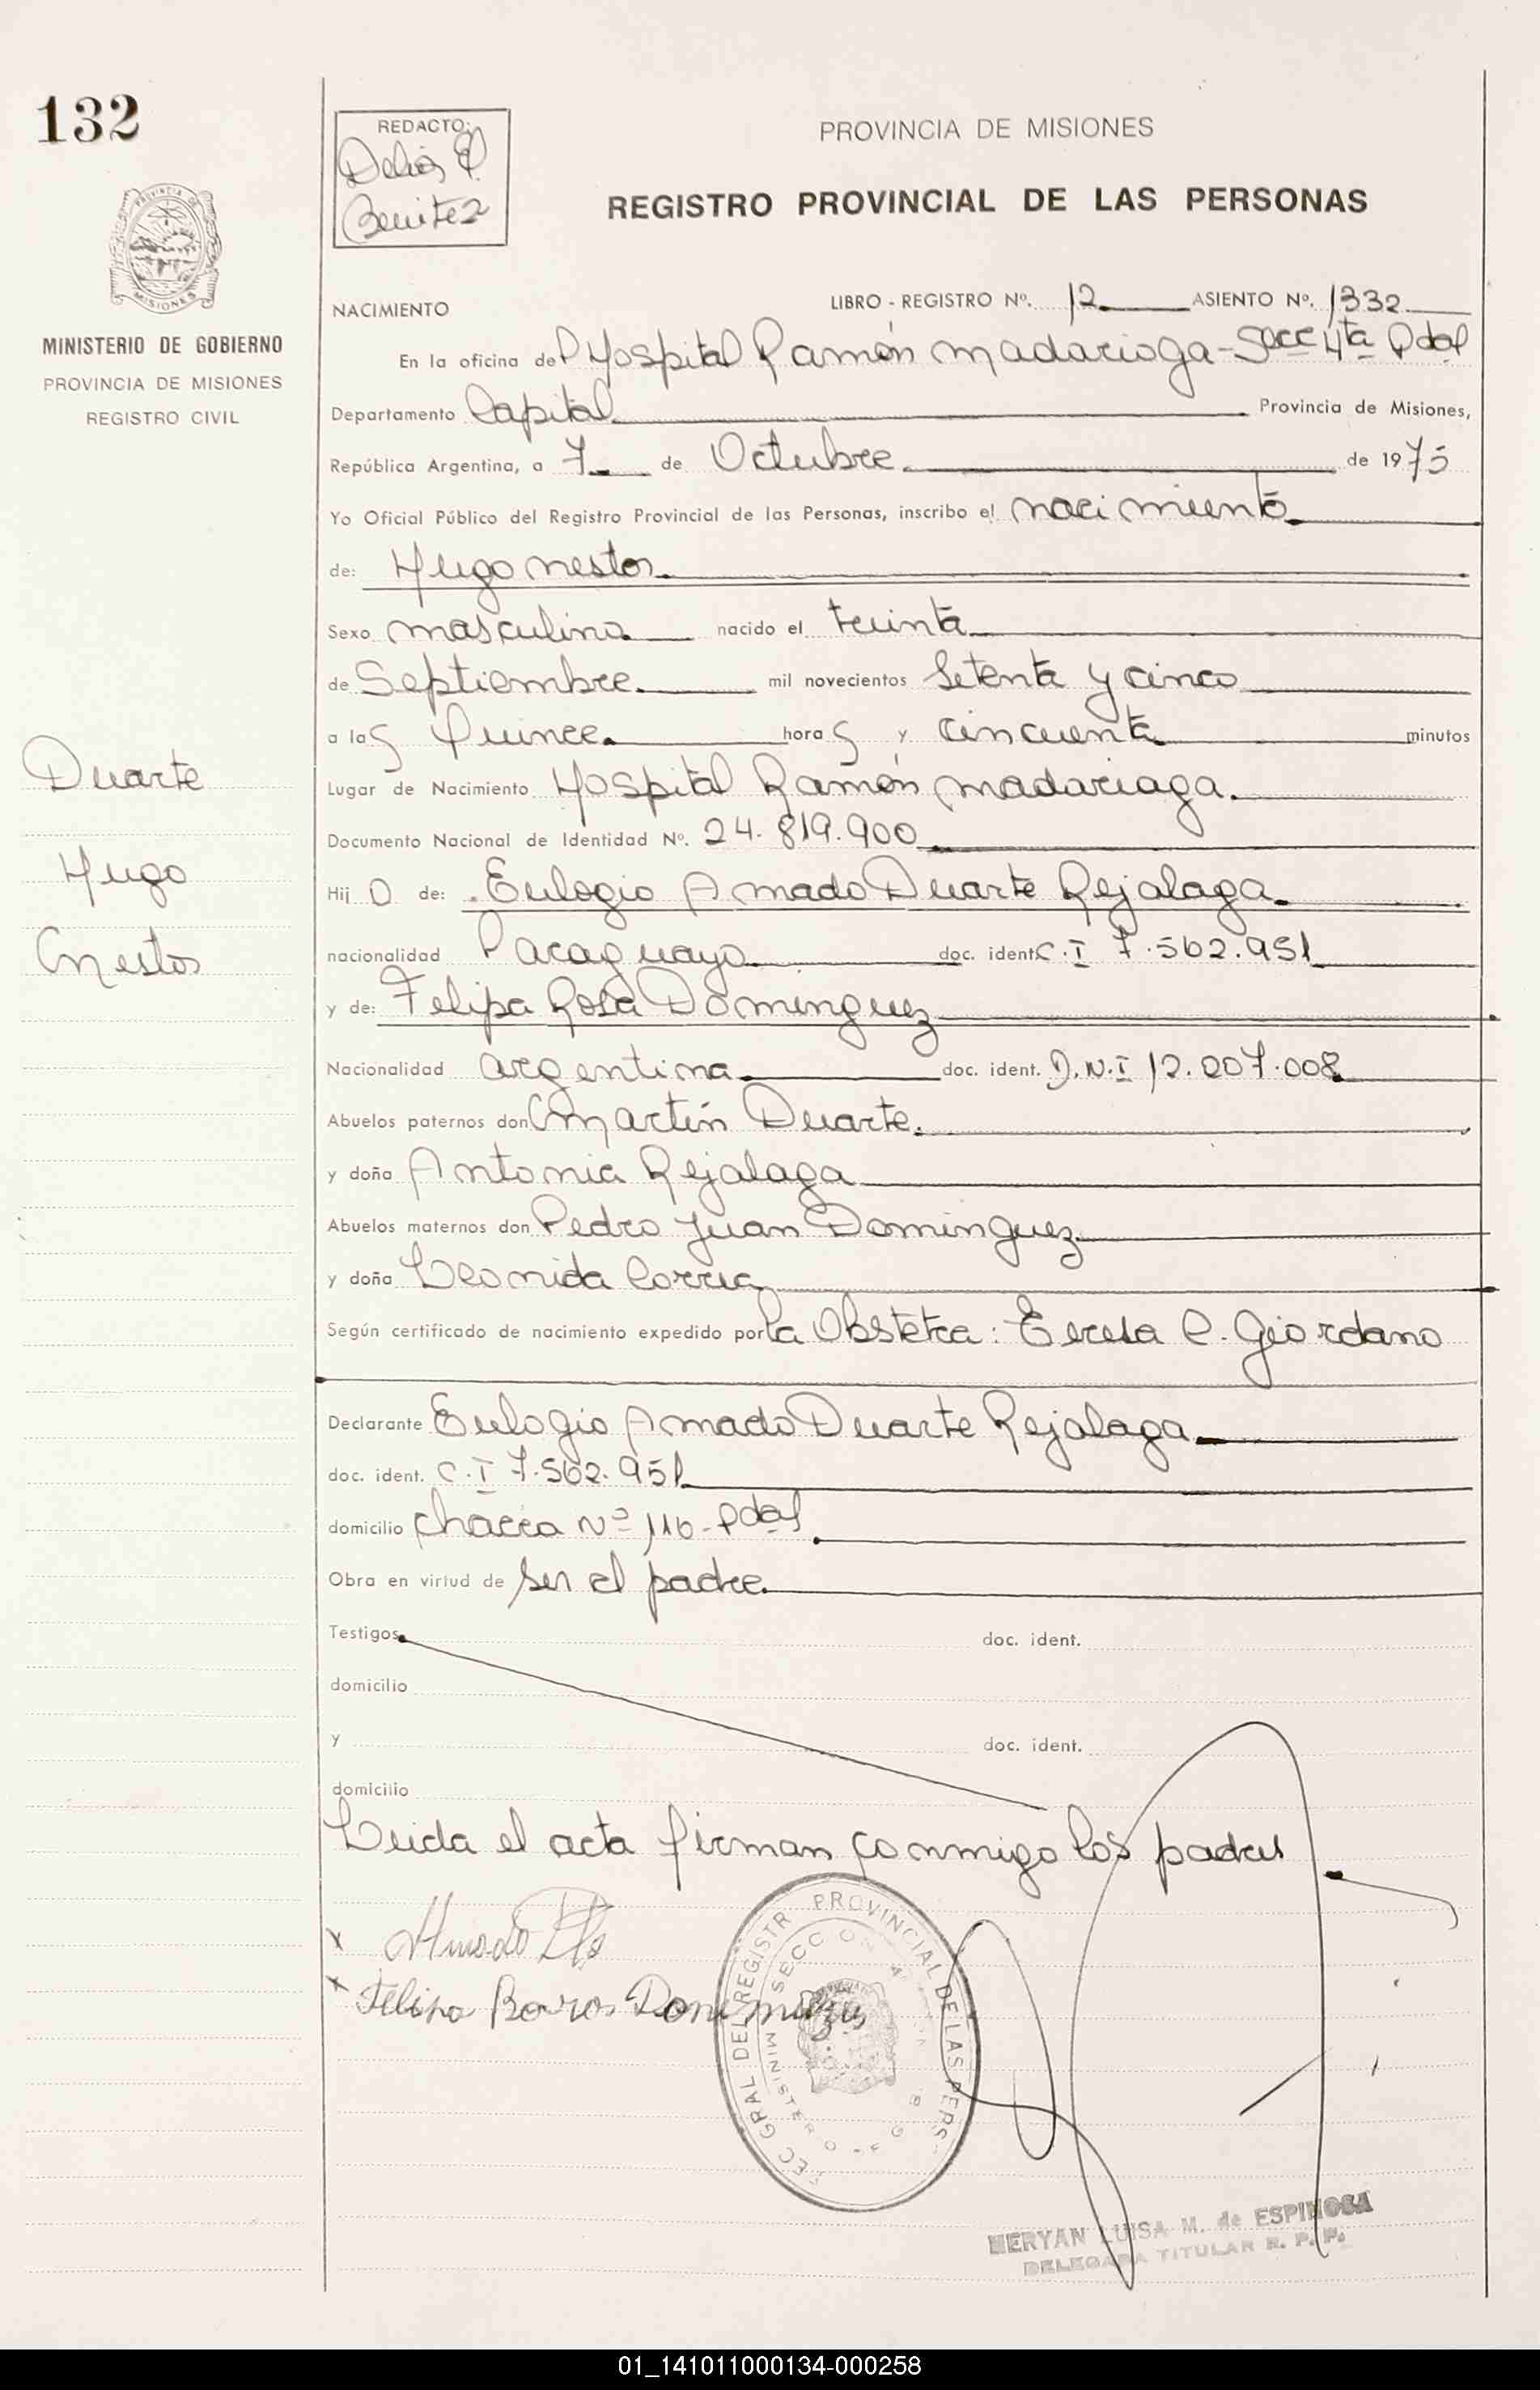 132
REDACTO:
Delia E.
Benitez
PROVINCIA DE MISIONES
REGISTRO PROVINCIAL DE LAS PERSONAS
MINISTERIO DE GOBIERNO
PROVINCIA DE MISIONES
REGISTRO CIVIL
NACIMIENTO LIBRO - REGISTRO Nº. 12 ASIENTO Nº. 1332
En la oficina del Hospital Ramón Madariaga - Secc 4ta Pdas
Departamento Capital Provincia de Misiones,
República Argentina, a 7 de Octubre de 1975
Yo Oficial Público del Registro Provincial de las Personas, inscribo el nacimiento
de: Hugo Nestor
Sexo masculino nacido el treinta
de Septiembre mil novecientos Setenta y cinco
a las Quince horas y cincuenta minutos
Duarte
Hugo
Nestor
Lugar de Nacimiento Hospital Ramón Madariaga.
Documento Nacional de Identidad Nº. 24.819.900
Hijo de: Eulogio Amado Duarte Rejalaga
nacionalidad Paraguayo doc. ident. C.I 7.562.951
y de: Felipa Rosa Dominguez
Nacionalidad argentina doc. ident. D.N.I 12.207.008
Abuelos paternos don Martín Duarte.
y doña Antonia Rejalaga
Abuelos maternos don Pedro Juan Dominguez
y doña Leonida Correa
Según certificado de nacimiento expedido por la Obstetra: Teresa C. Giordano
Declarante Eulogio Amado Duarte Rejalaga
doc. ident. C.I 7.562.951
domicilio chacra Nº 116 - Pdas
Obra en virtud de ser el padre.
Testigos doc. ident.
domicilio
y doc. ident.
domicilio
Leida el acta firman conmigo los padres
x Amado
x Felipa Dominguez
MERYAN LUISA M. de ESPINOSA
DELEGADA TITULAR R. P. P.
01_141011000134-000258